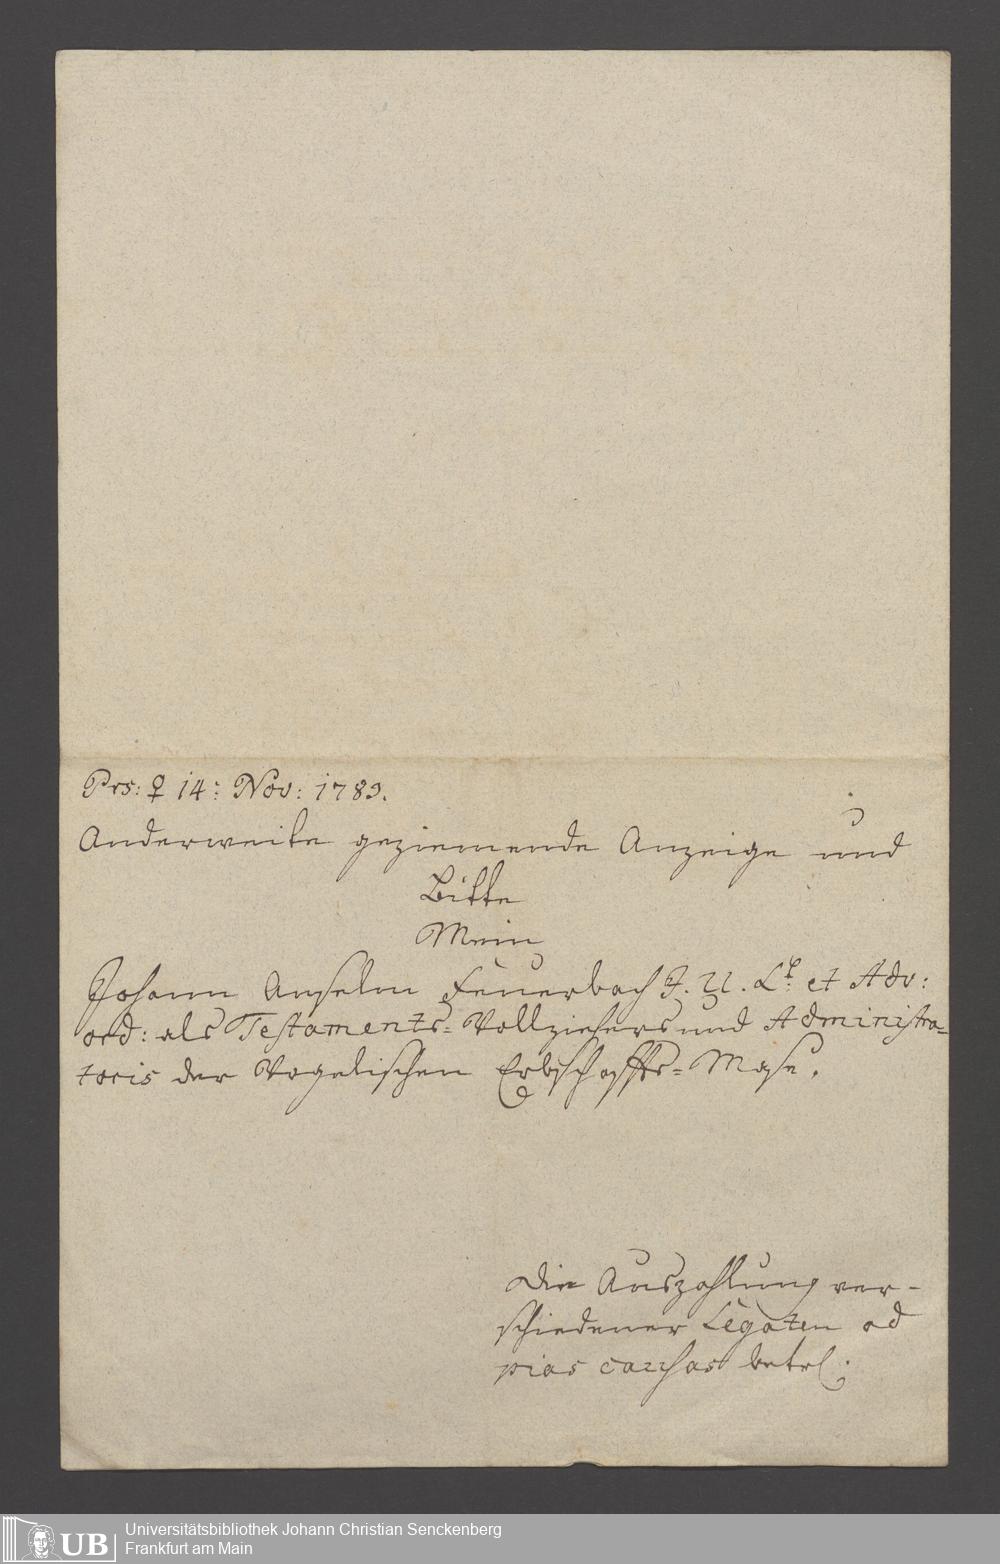 Prs: ♀ 14: Nov: 1783.
Anderweite geziemende Anzeige und
Bitte
Mein
Johann Anselm Feuerbach J. U. Lt: et Adv:
ord: als Testaments-Vollziehers und Administra-
toris der Vogelischen Erbschaffts-Mase.
Die Auszahlung ver-
schiedener Legaten ad
pias caussas betrl:
UB
Universitätsbibliothek Johann Christian Senckenberg
Frankfurt am Main